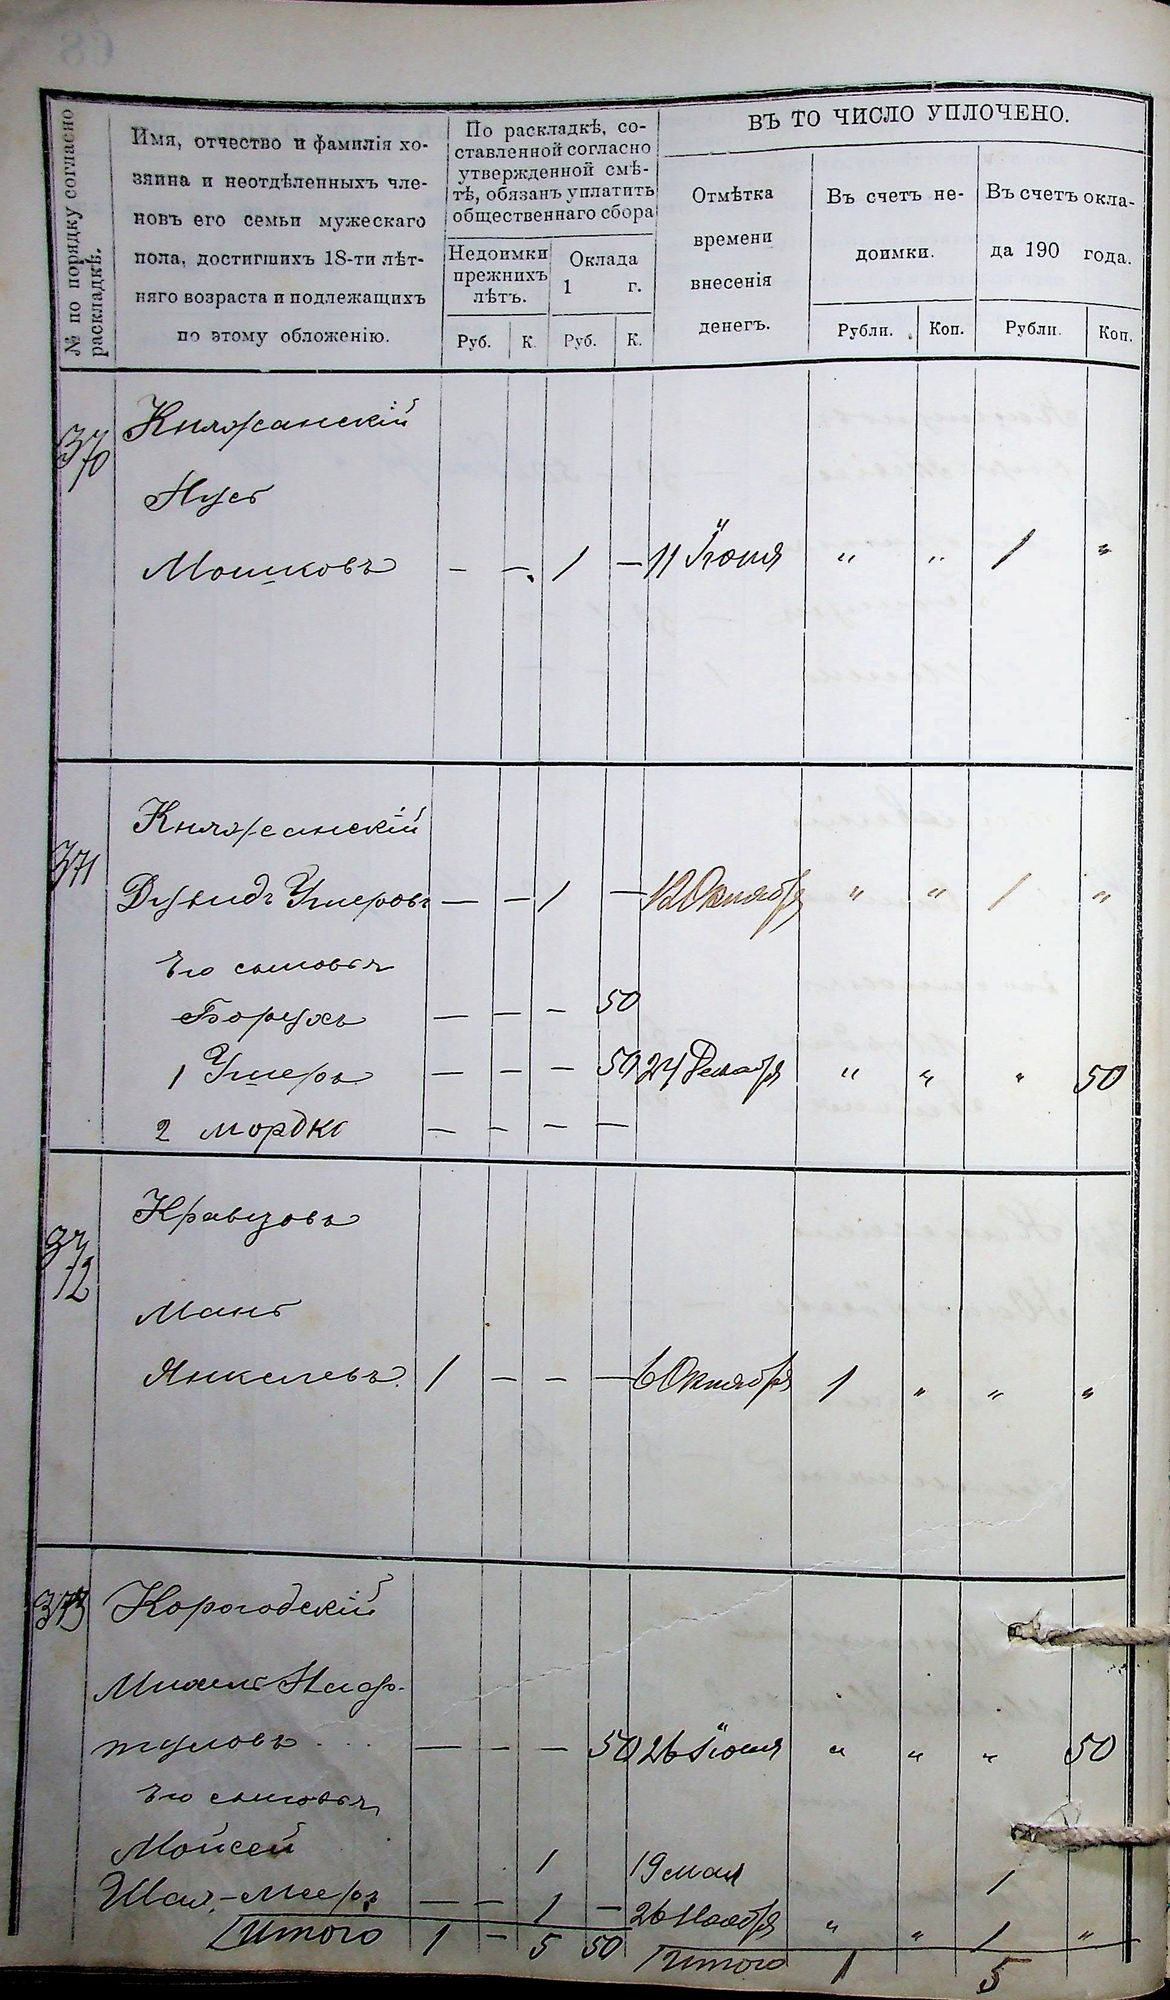 № по порядку согласно раскладкѣ.
Имя, отчество и фамилія хо-
зяина и неотдѣленныхъ чле-
новъ его семьи мужескаго
пола, достигшихъ 18-ти лѣт-
няго возраста и подлежащихъ
по этому обложенію.
По раскладкѣ, со-
ставленной согласно
утвержденной смѣ-
тѣ, обязанъ уплатить
общественнаго сбора
Недоимки
прежнихъ
лѣтъ.
Оклада
1 г.
Руб. К. Руб. К.
ВЪ ТО ЧИСЛО УПЛОЧЕНО.
Отмѣтка
времени
внесенія
денегъ.
Въ счетъ не-
доимки.
Въ счетъ окла-
да 190 года.
Рубли. Коп. Рубли. Коп.
370 Княжанскій
Нусъ
Мошковъ — — 1 — 11 Іюня " " 1 "
Княжанскій
371 Дувидъ Умеровъ — — 1 — 12 Октября " " 1 "
Его сыновья
Борухъ — — — 50
1 Умеръ — — — 50 24 Декабря " " " 50
2 Мордко — — — —
372 Кравцовъ
Манъ
Янкелевъ 1 — — — 6 Октября 1 " " "
373 Корогодскій
Михель Наф-
туловъ — — — 50 26 Іюня " " " 50
Его сыновья
Мойсей 1 19 мая 1
Шая-Мееръ — — 1 — 26 Ноября " " 1 "
Итого 1 — 5 50 Итого 1 5